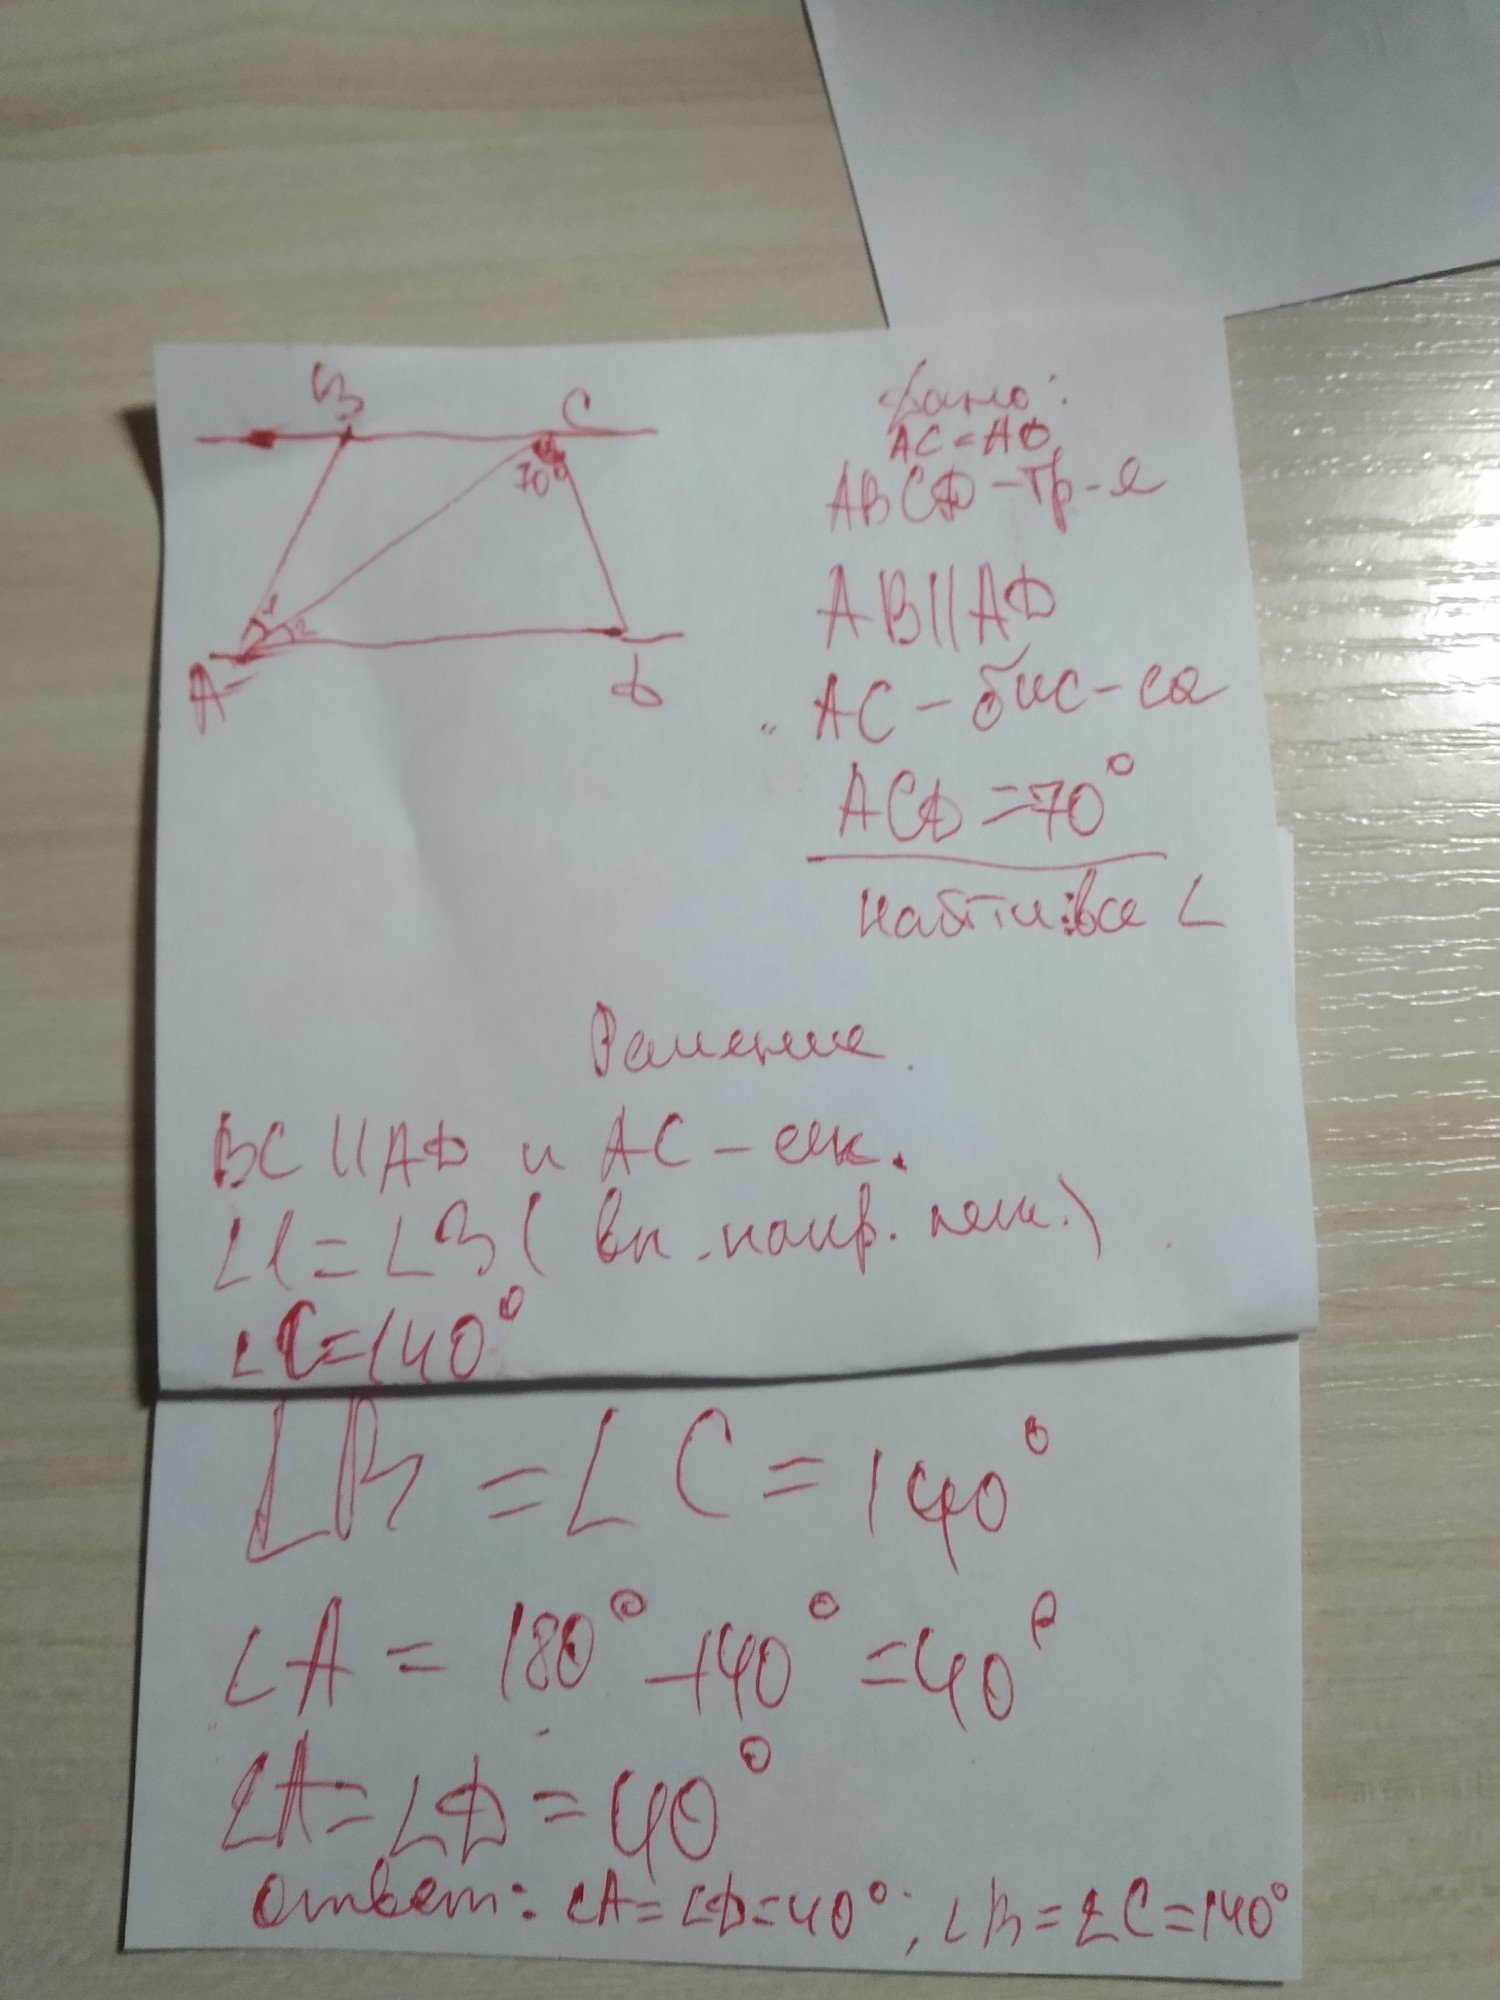 B C
70°
1 2
A D
Дано:
AC = AD
ABCD - тр-я
AB || AD
AC - бис-са
ACD = 70°
Найти: все ∠
Решение
BC || AD и AC - сек.
∠1 = ∠3 ( )
∠C = 140°
∠B = ∠C = 140°
∠A = 180° - 140° = 40°
∠A = ∠D = 40°
Ответ: ∠A = ∠D = 40°; ∠B = ∠C = 140°